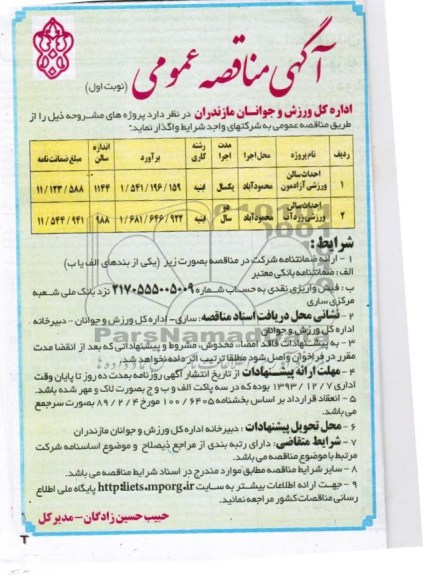 آگهی مناقصه عمومی
(نوبت اول)
اداره کل ورزش و جوانان مازندران در نظر دارد پروژه های مشروحه ذیل را از
طریق مناقصه عمومی به شرکتهای واجد شرایط واگذار نماید:
ردیف نام پروژه محل اجرا مدت اجرا رشته کاری برآورد اندازه سالن مبلغ ضمانت نامه
۱ احداث سالن ورزشی آزادمون محمودآباد یکسال ابنیه ۱/۵۴۱/۱۹۶/۱۵۹ ۱۱۴۴ ۱۱/۱۳۳/۵۸۸
۲ احداث سالن ورزشی زردآب محمودآباد دو سال ابنیه ۱/۶۸۱/۶۴۶/۹۲۲ ۹۸۸ ۱۱/۵۴۴/۹۴۱
شرایط:
۱ - ارائه ضمانتنامه شرکت در مناقصه بصورت زیر (یکی از بندهای الف یا ب)
الف: ضمانتنامه بانکی معتبر
ب: فیش واریزی نقدی به حساب شماره ۲۱۷۰۵۵۵۰۰۵۰۰۹ نزد بانک ملی شعبه
مرکزی ساری
۲ - نشانی محل دریافت اسناد مناقصه: ساری - اداره کل ورزش و جوانان - دبیرخانه
اداره کل ورزش و جوانان
۳ - به پیشنهادات فاقد امضا، مخدوش، مشروط و پیشنهاداتی که بعد از انقضا مدت
مقرر در فراخوان واصل شود مطلقا ترتیب اثر داده نخواهد شد.
۴ - مهلت ارائه پیشنهادات از تاریخ انتشار آگهی روزنامه بمدت ده روز تا پایان وقت
اداری ۱۳۹۳/۱۲/۷ بوده که در سه پاکت الف و ب و ج بصورت لاک و مهر شده باشد.
۵ - انعقاد قرارداد بر اساس بخشنامه ۱۰۰/۶۴۰۵ مورخ ۸۹/۲/۴ بصورت سرجمع
می باشد.
۶ - محل تحویل پیشنهادات: دبیرخانه اداره کل ورزش و جوانان مازندران
۷ - شرایط متقاضی: دارای رتبه بندی از مراجع ذیصلاح و موضوع اساسنامه شرکت
مرتبط با موضوع مناقصه می باشد.
۸ - سایر شرایط مناقصه مطابق موارد مندرج در اسناد شرایط مناقصه می باشد.
۹ - جهت ارائه اطلاعات بیشتر به سایت http:iets.mporg.ir پایگاه ملی اطلاع
رسانی مناقصات کشور مراجعه نمائید.
حبیب حسین زادگان - مدیر کل
ParsNamad